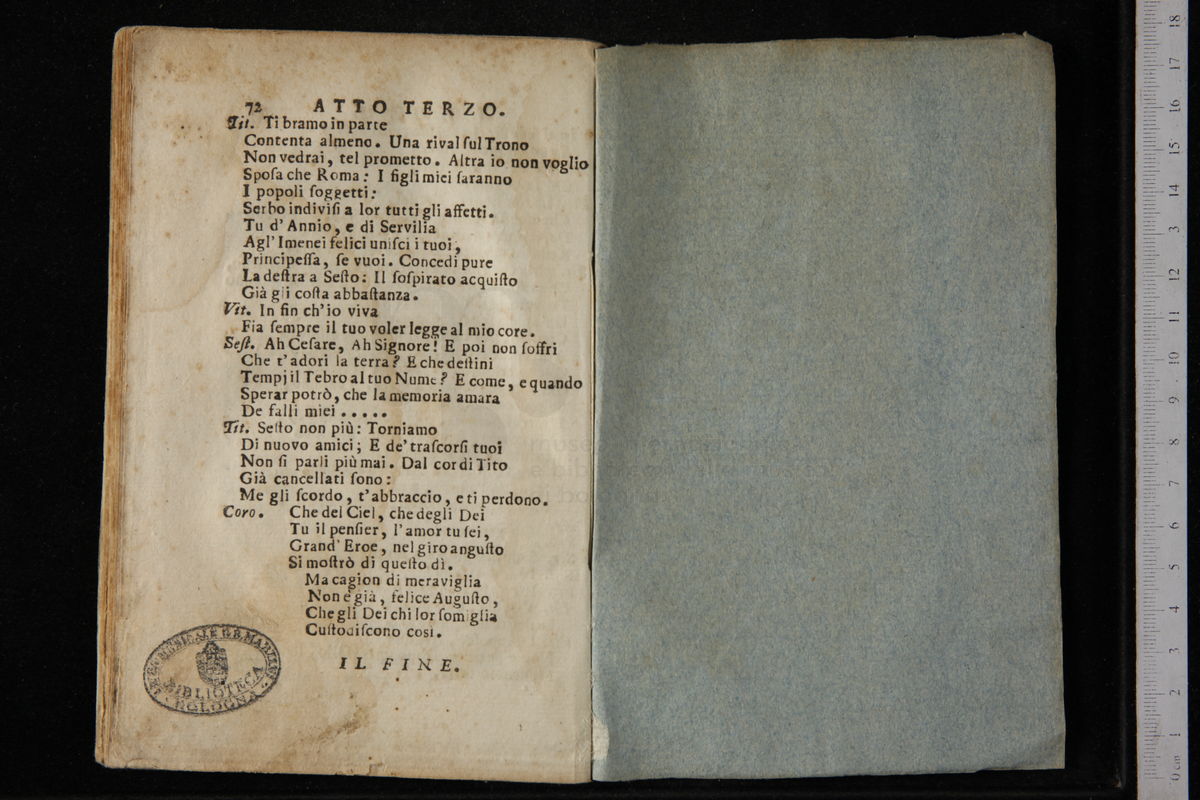 72 ATTO TERZO.
Tit. Ti bramo in parte
Contenta almeno. Una rival ſul Trono
Non vedrai, tel prometto. Altra io non voglio
Spoſa che Roma: I figli miei ſaranno
I popoli ſoggetti:
Serbo indiviſi a lor tutti gli affetti.
Tu d'Annio, e di Servilia
Agl'Imenei felici uniſci i tuoi,
Principeſſa, ſe vuoi. Concedi pure
La deſtra a Seſto: Il ſoſpirato acquiſto
Già gli coſta abbaſtanza.
Vit. In fin ch'io viva
Fia ſempre il tuo voler legge al mio core.
Seſt. Ah Ceſare, Ah Signore! E poi non ſoffri
Che t'adori la terra? E che deſtini
Tempj il Tebro al tuo Nume? E come, e quando
Sperar potrò, che la memoria amara
De falli miei .....
Tit. Seſto non più: Torniamo
Di nuovo amici; E de' traſcorſi tuoi
Non ſi parli più mai. Dal cor di Tito
Già cancellati ſono:
Me gli ſcordo, t'abbraccio, e ti perdono.
Coro. Che del Ciel, che degli Dei
Tu il penſier, l'amor tu ſei,
Grand' Eroe, nel giro anguſto
Si moſtrò di queſto dì.
Ma cagion di meraviglia
Non è già, felice Auguſto,
Che gli Dei chi lor ſomiglia
Cuſtodiſcono così.
IL FINE.
BIBLIOTECA
BOLOGNA
museo internazionale
e biblioteca della musica
di bologna
0 cm 1 2 3 4 5 6 7 8 9 10 11 12 3 14 15 16 17 18